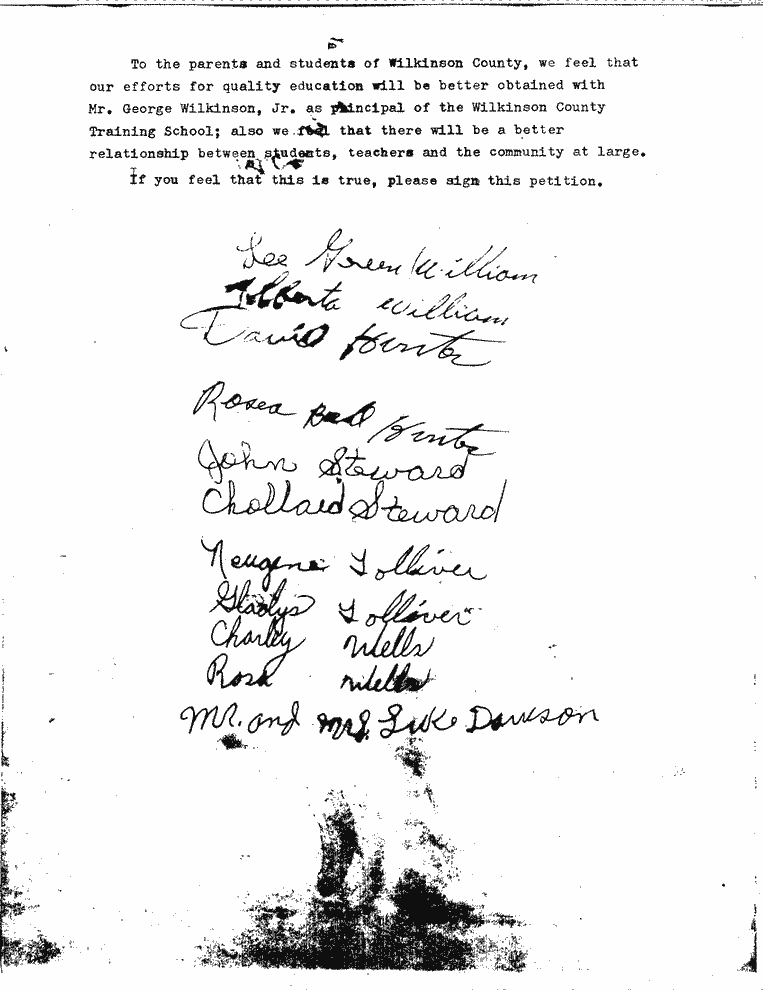 To the parents and students of Wilkinson County, we feel that
our efforts for quality education will be better obtained with
Mr. George Wilkinson, Jr. as principal of the Wilkinson County
Training School; also we feel that there will be a better
relationship between students, teachers and the community at large.
If you feel that this is true, please sign this petition.
Lee Green William
Alberta William
David Hunter
Rosea Bell Hunter
John Steward
Chollaid Steward
Neugene Tolliver
Gladys Tolliver
Charley Wells
Rosa Wells
Mr. and Mrs. Luke Dawson